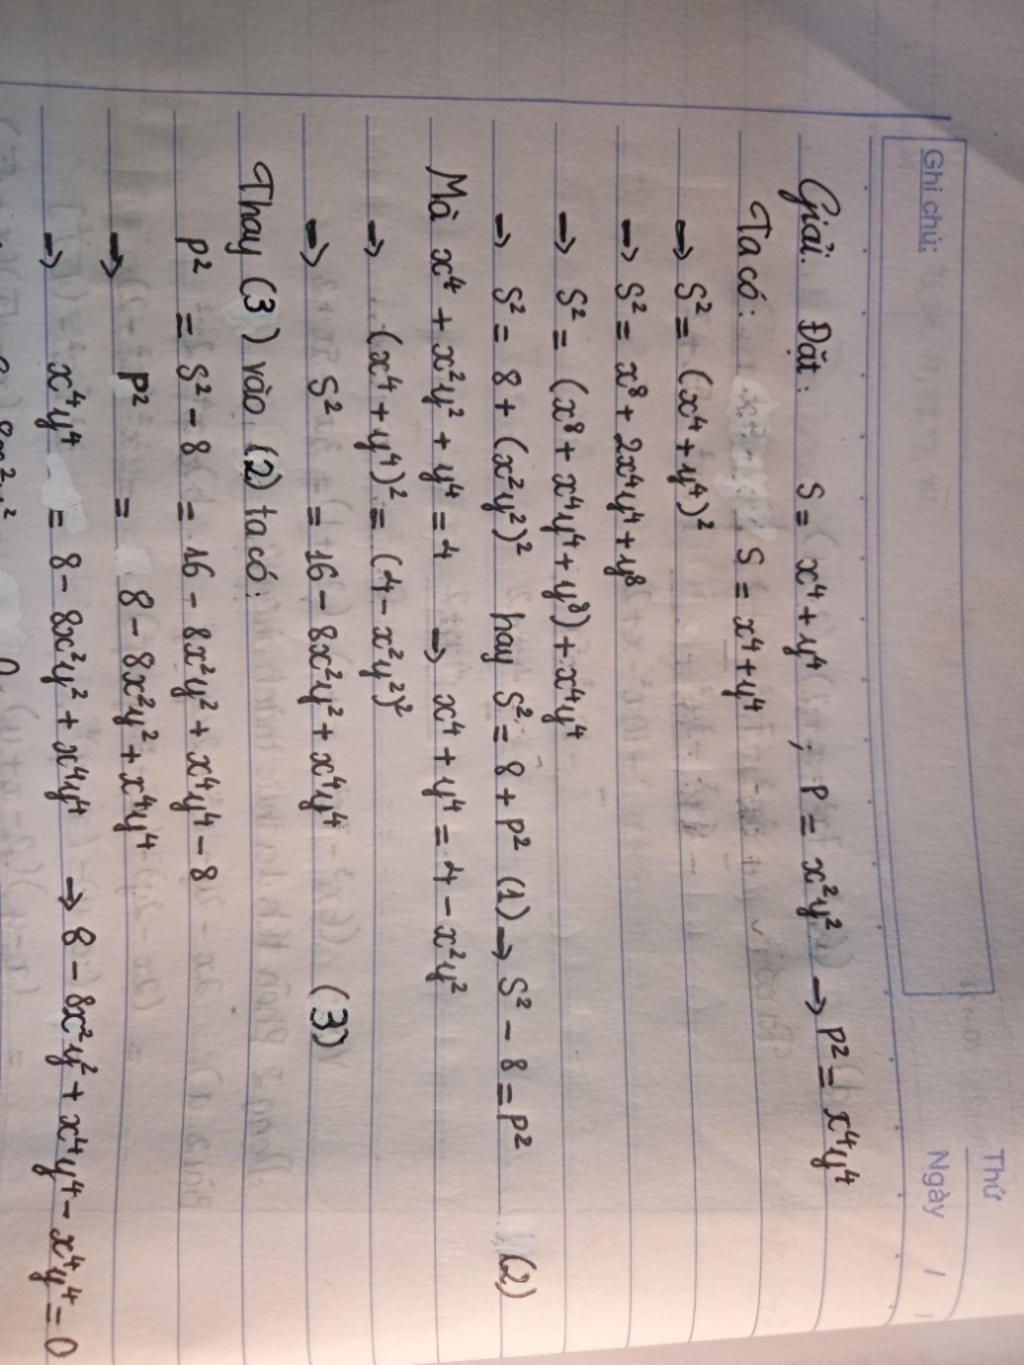 Thứ
Ngày / /
Ghi chú:
Giải: Đặt: S = x⁴ + y⁴ , P = x²y² → P² = x⁴y⁴
Ta có: S = x⁴ + y⁴
→ S² = (x⁴ + y⁴)²
→ S² = x⁸ + 2x⁴y⁴ + y⁸
→ S² = (x⁸ + x⁴y⁴ + y⁸) + x⁴y⁴
→ S² = 8 + (x²y²)² hay S² = 8 + P² (1) → S² - 8 = P² (2)
Mà x⁴ + x²y² + y⁴ = 4 → x⁴ + y⁴ = 4 - x²y²
→ (x⁴ + y⁴)² = (4 - x²y²)²
→ S² = 16 - 8x²y² + x⁴y⁴ (3)
Thay (3) vào (2) ta có:
P² = S² - 8 = 16 - 8x²y² + x⁴y⁴ - 8
→ P² = 8 - 8x²y² + x⁴y⁴
→ x⁴y⁴ = 8 - 8x²y² + x⁴y⁴ → 8 - 8x²y² + x⁴y⁴ - x⁴y⁴ = 0